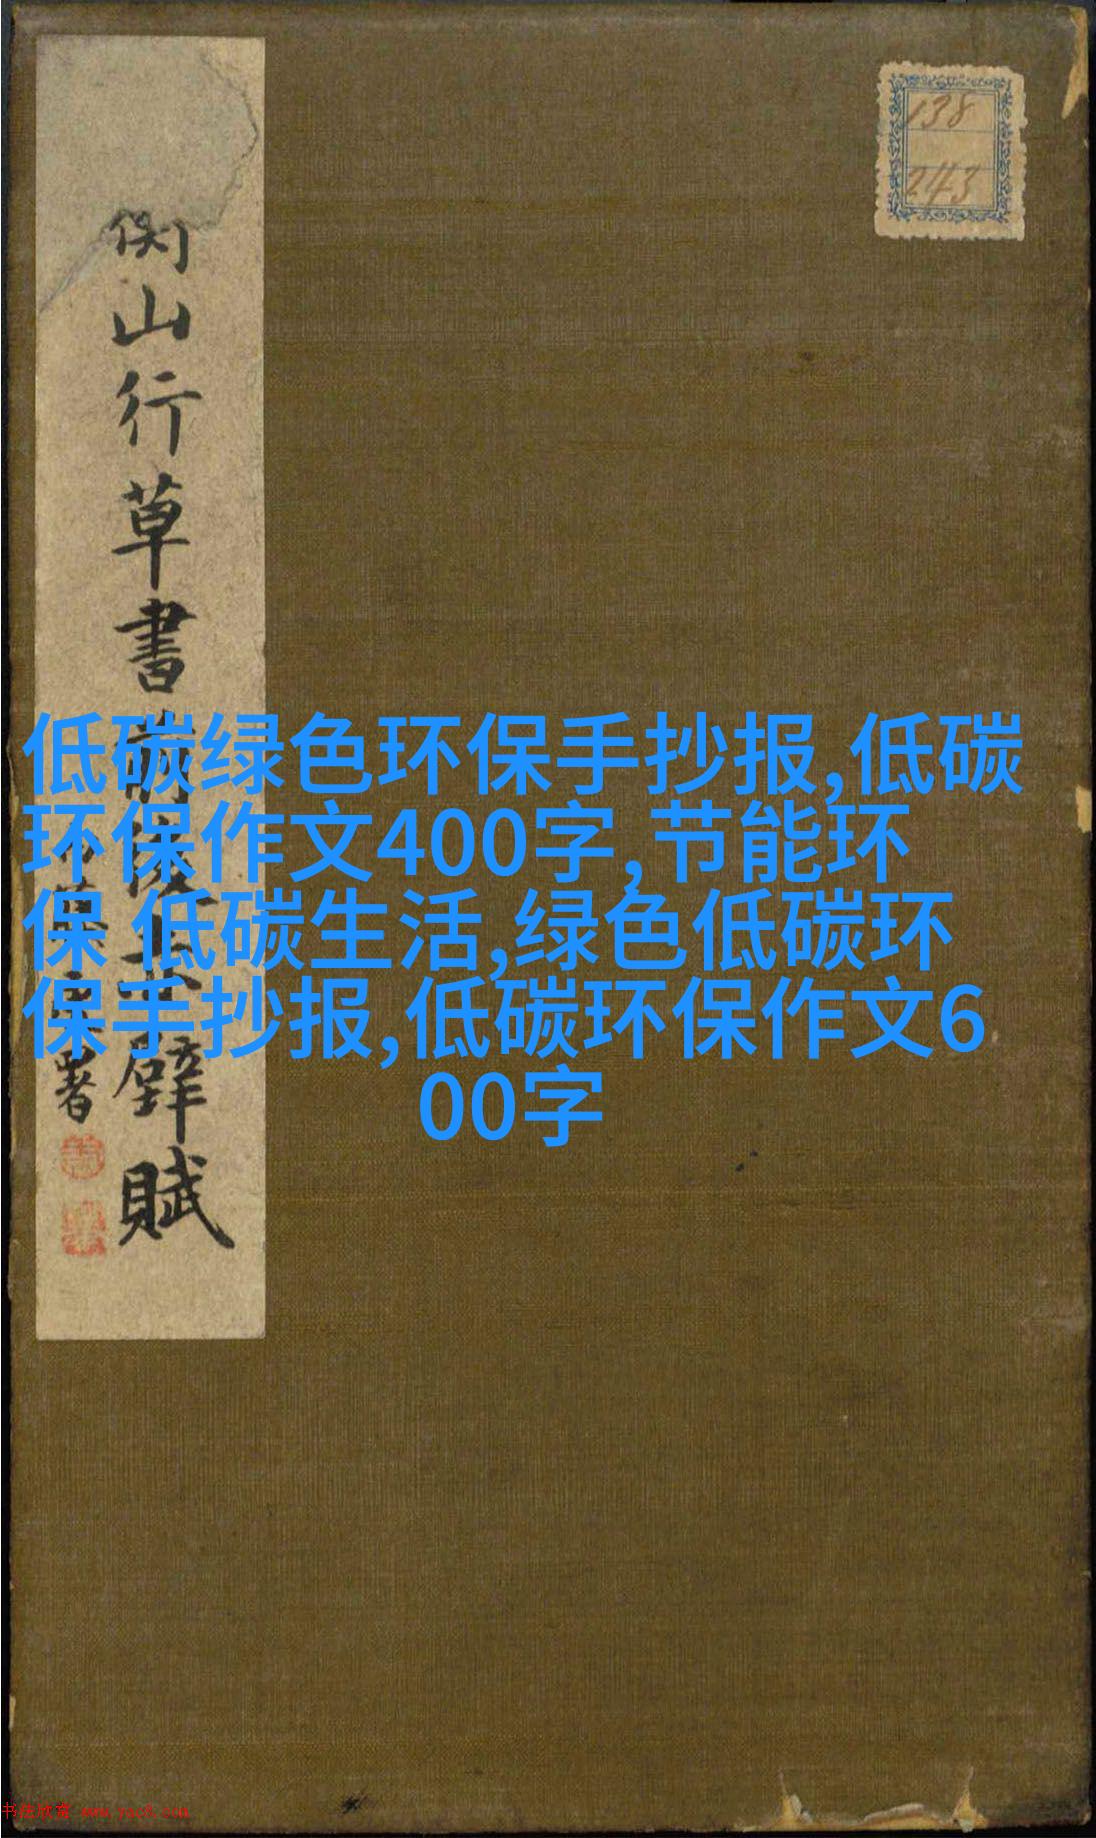 138
243
衡山行草書前後赤壁賦
署
低碳绿色环保手抄报,低碳
环保作文400字,节能环
保 低碳生活,绿色低碳环
保手抄报,低碳环保作文6
00字
书法欣赏 www.yac8.com